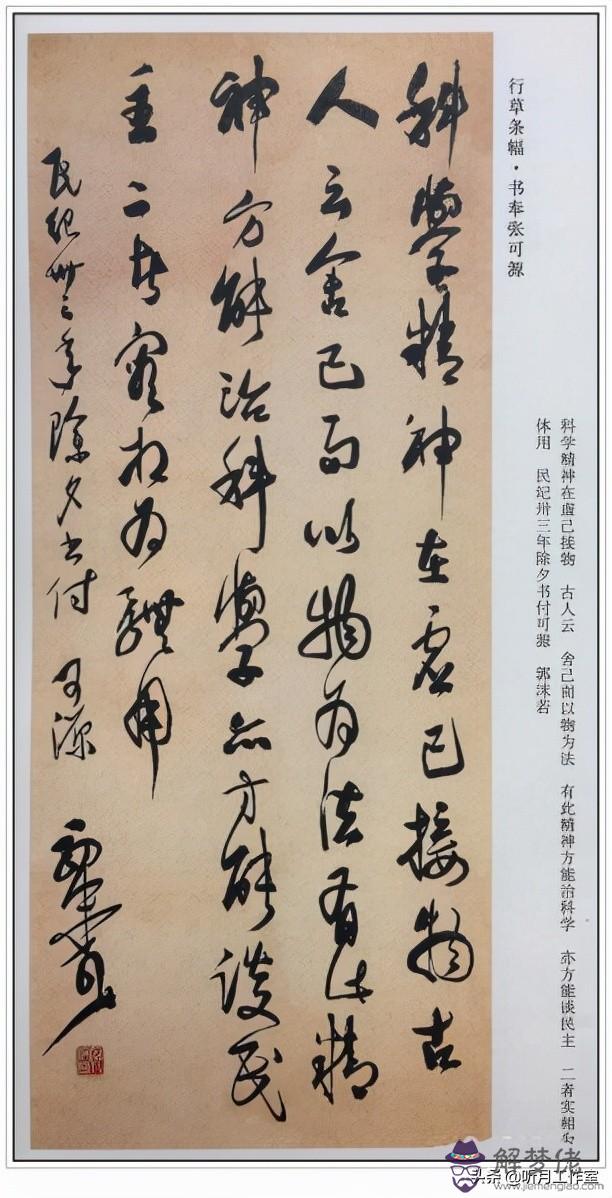 行草条幅·书奉张可源
科学精神在虚己接物 古人云 舍己而以物为法 有此精神方能治科学 亦方能谈民主 二者实相为
体用 民纪卅三年除夕书付可源 郭沫若
科學精神在虛己接物古
人云舍己而以物为法有此精
神方能治科學亦方能談民
主二者實相为體用
民紀卅三年除夕書付 可源 郭沫若
头条@听月工作室
解梦佬
www.jiemenglao.com